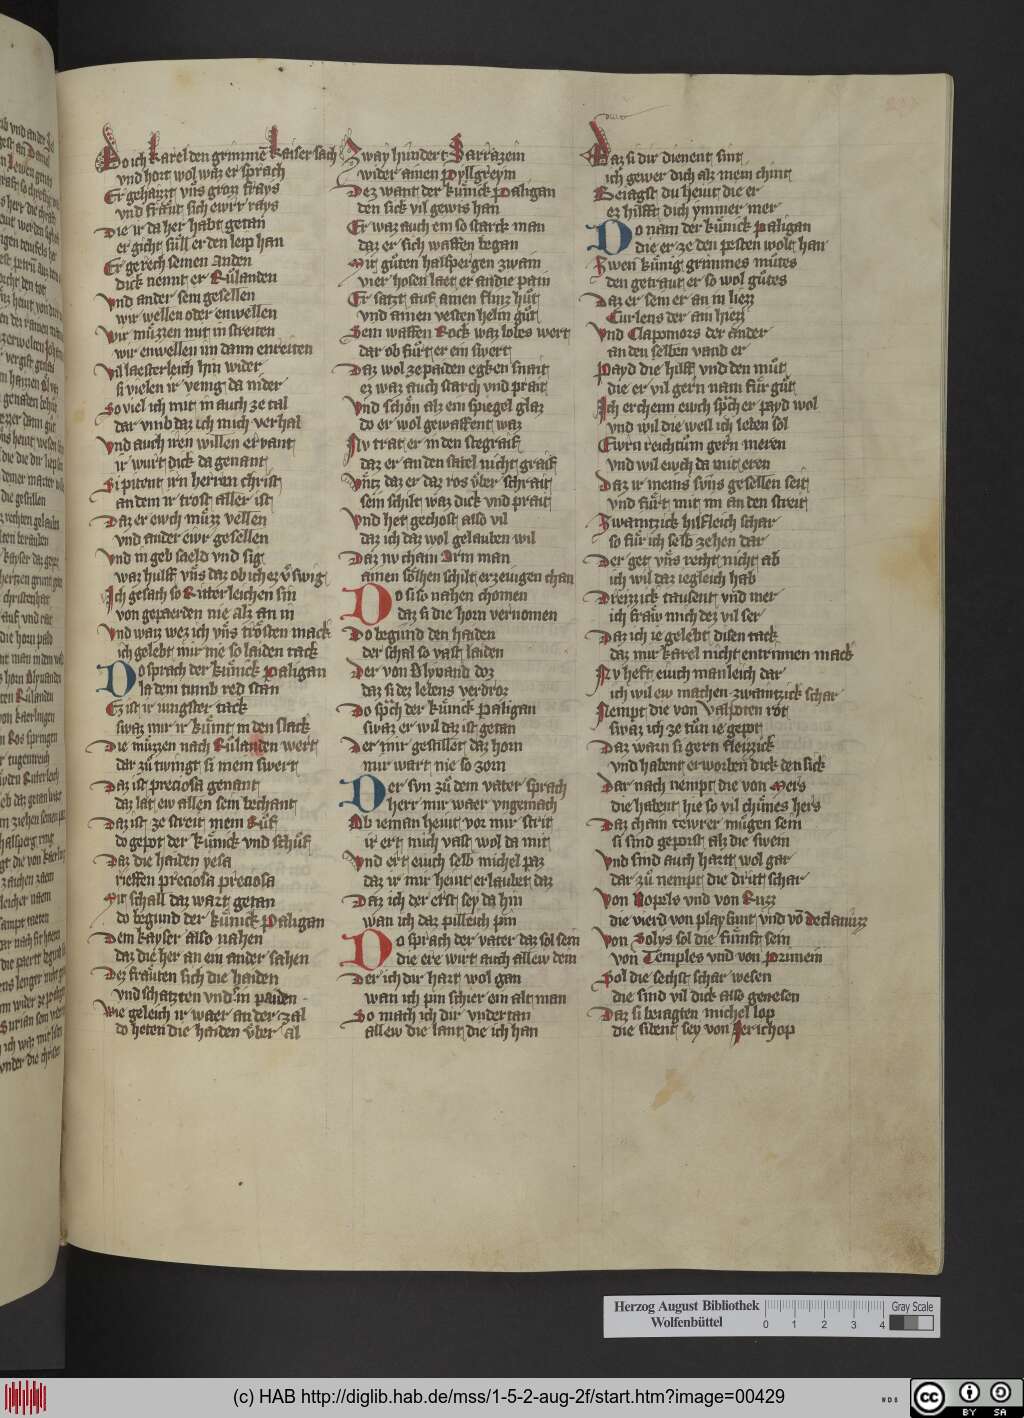 Do ich karel den grimmē kaiser sach
vnd hort wol waz er sprach
Er gehaizt vns groz frays
vnd fraut sich ewrr rays
Die ir da her habt getan
er gicht süll er den leip han
Er gerech seinen Anden
dick nennt er Rülanden
Vnd ander sein gesellen
wir wellen oder enwellen
Wir müzzen mit in streiten
wir enwellen im dann enreiten
Vil laesterleich hin wider
si vielen ir venig da nider
So viel ich mit in auch ze tal
dar vmb daz ich mich verhal
Vnd auch iren willen ervant
ir wurt dick da genant
Si pitent irn herren christ
an dem ir trost aller ist
Daz er ewch müzz vellen
vnd ander ewr gesellen
Vnd in geb saeld vnd sig
waz hulff vns daz ob ich ez v̊swig
Ich gesach so Ritterleichen sin
von gepaerden nie alz an in
Vnd waiz wez ich vns trösten mack
ich gelebt mir nie so laiden tack
Do sprach der künick Paligan
la dem tumb red stan
Ez ist ir iungster tack
swaz mir ir kümt in den slack
Die müzzen nach Rülanden wert
dar zü twingt si mein swert
Daz ist preciosa genant
daz lat ew allen sein bechant
Daz ist ze streit mein Ruf
do gepot der künick vnd schüf
Daz die haiden yesa
rieffen preciosa preciosa
Mit schall daz wart getan
do begund der künick Paligan
Dem kayser also nahen
daz die her an ein ander sahen
Dez frauten sich die haiden
vnd schatzten vnd' in paiden
Wie geleich ir waer an der zal
do heten die haiden vber al
Zway hundert Sarrazein
wider ainen pyllgreym
Dez want der künick Paligan
den sick vil gewis han
Er waz auch ein so starck man
daz er sich waffen began
Mit güten halspergen zwain
vier hosen laet er an die pain
Er satzt auf ainen flinz hüt
vnd ainen vesten helm güt
Sein waffen Rock waz lobes wert
dar ob fürt er ein swert
Daz wol ze paiden egken snait
ez waz auch starch vnd prait
Vnd schön alz ein spiegel glaz
do er wol gewaffent waz
Nv trat er in den stegraif
daz er an den satel nicht graif
Vntz daz er daz ros vber schrait
sein schilt waz dick vnd prait
Vnd het gechost also vil
daz ich daz wol gelauben wil
Daz nv chain Arm man
ainen sölhen schilt erzeugen chan
Do si so nahen chomen
daz si die horn vernomen
Do begund den haiden
der schal so vast laiden
Der von Olyvand doz
daz si dez lebens verdroz
Do sp̄ch der künick Paligan
swaz er wil daz ist getan
Der mir gestillet daz horn
mir wart nie so zorn
Der svn zü dem vater sprach
herr mir waer vngemach
Ob ieman heint vor mir strit
ir ert mich vast wol da mit
Vnd ert euch selb michel paz
daz ir mir heint erlaubet daz
Daz ich der erst sey da hin
wan ich daz pilleich pin
Do sprach der vater daz sol sein
die ere wirt auch allew dein
Der ich dir hart wol gan
wan ich pin schier ein alt man
So mach ich dir vndertan
allew die lant die ich han
Daz si dir dienent sint
ich gewer dich alz mein chint
Beiagst du heint die er
ez hilfft dich ymmer mer
Do nam der künick Paligan
die er ze den pesten wolt han
Zwen künig grimmes mütes
den getraut er so wol gütes
Daz er sein er an in liezz
Curlens der ain hiezz
Vnd Clapomors der ander
an den selben vand er
Payd die hilff vnd den müt
die er vil gern nam für güt
Ich erchenn ewch sp̄ch er payd wol
vnd wil die weil ich leben sol
Ewrn reichtüm gern meren
vnd wil ewch da mit eren
Daz ir meins svns gesellen seit
vnd fürt mit im an den streit
Zwaintzick hilfleich schar
so für ich selb zehen dar
Der get vns recht nicht ab
ich wil daz iegleich hab
Dreizzick tausent vnd mer
ich fraw mich dez vil ser
Daz ich ie gelebt disen tack
daz mir karel nicht entrinnen mack
Nv heft euch manleich dar
ich wil ew machen zwaintzick schar
Nempt die von Valpoten rot
swaz ich ze tün ie gepot
Daz warn si gern fleizzick
vnd habent erworben dick den sick
Dar nach nempt die von Meirs
die habent hie so vil chünes hers
Daz chain tewrer mügen sein
si sind geporst alz die swein
Vnd sind auch hartt wol gar
dar zü nempt die dritt schar
Von Nopels vnd von Ruzz
die vierd von playsunt vnd vō Declanuzz
Von Solys sol die fünfft sein
von Temples vnd von Primein
Sol die sechst schar wesen
die sind vil dick also genesen
Daz si beiagten michel lop
die sibent sey von Jerichop
Herzog August Bibliothek
Wolfenbüttel
0 1 2 3 4
Gray Scale
(c) HAB http://diglib.hab.de/mss/1-5-2-aug-2f/start.htm?image=00429
cc BY SA